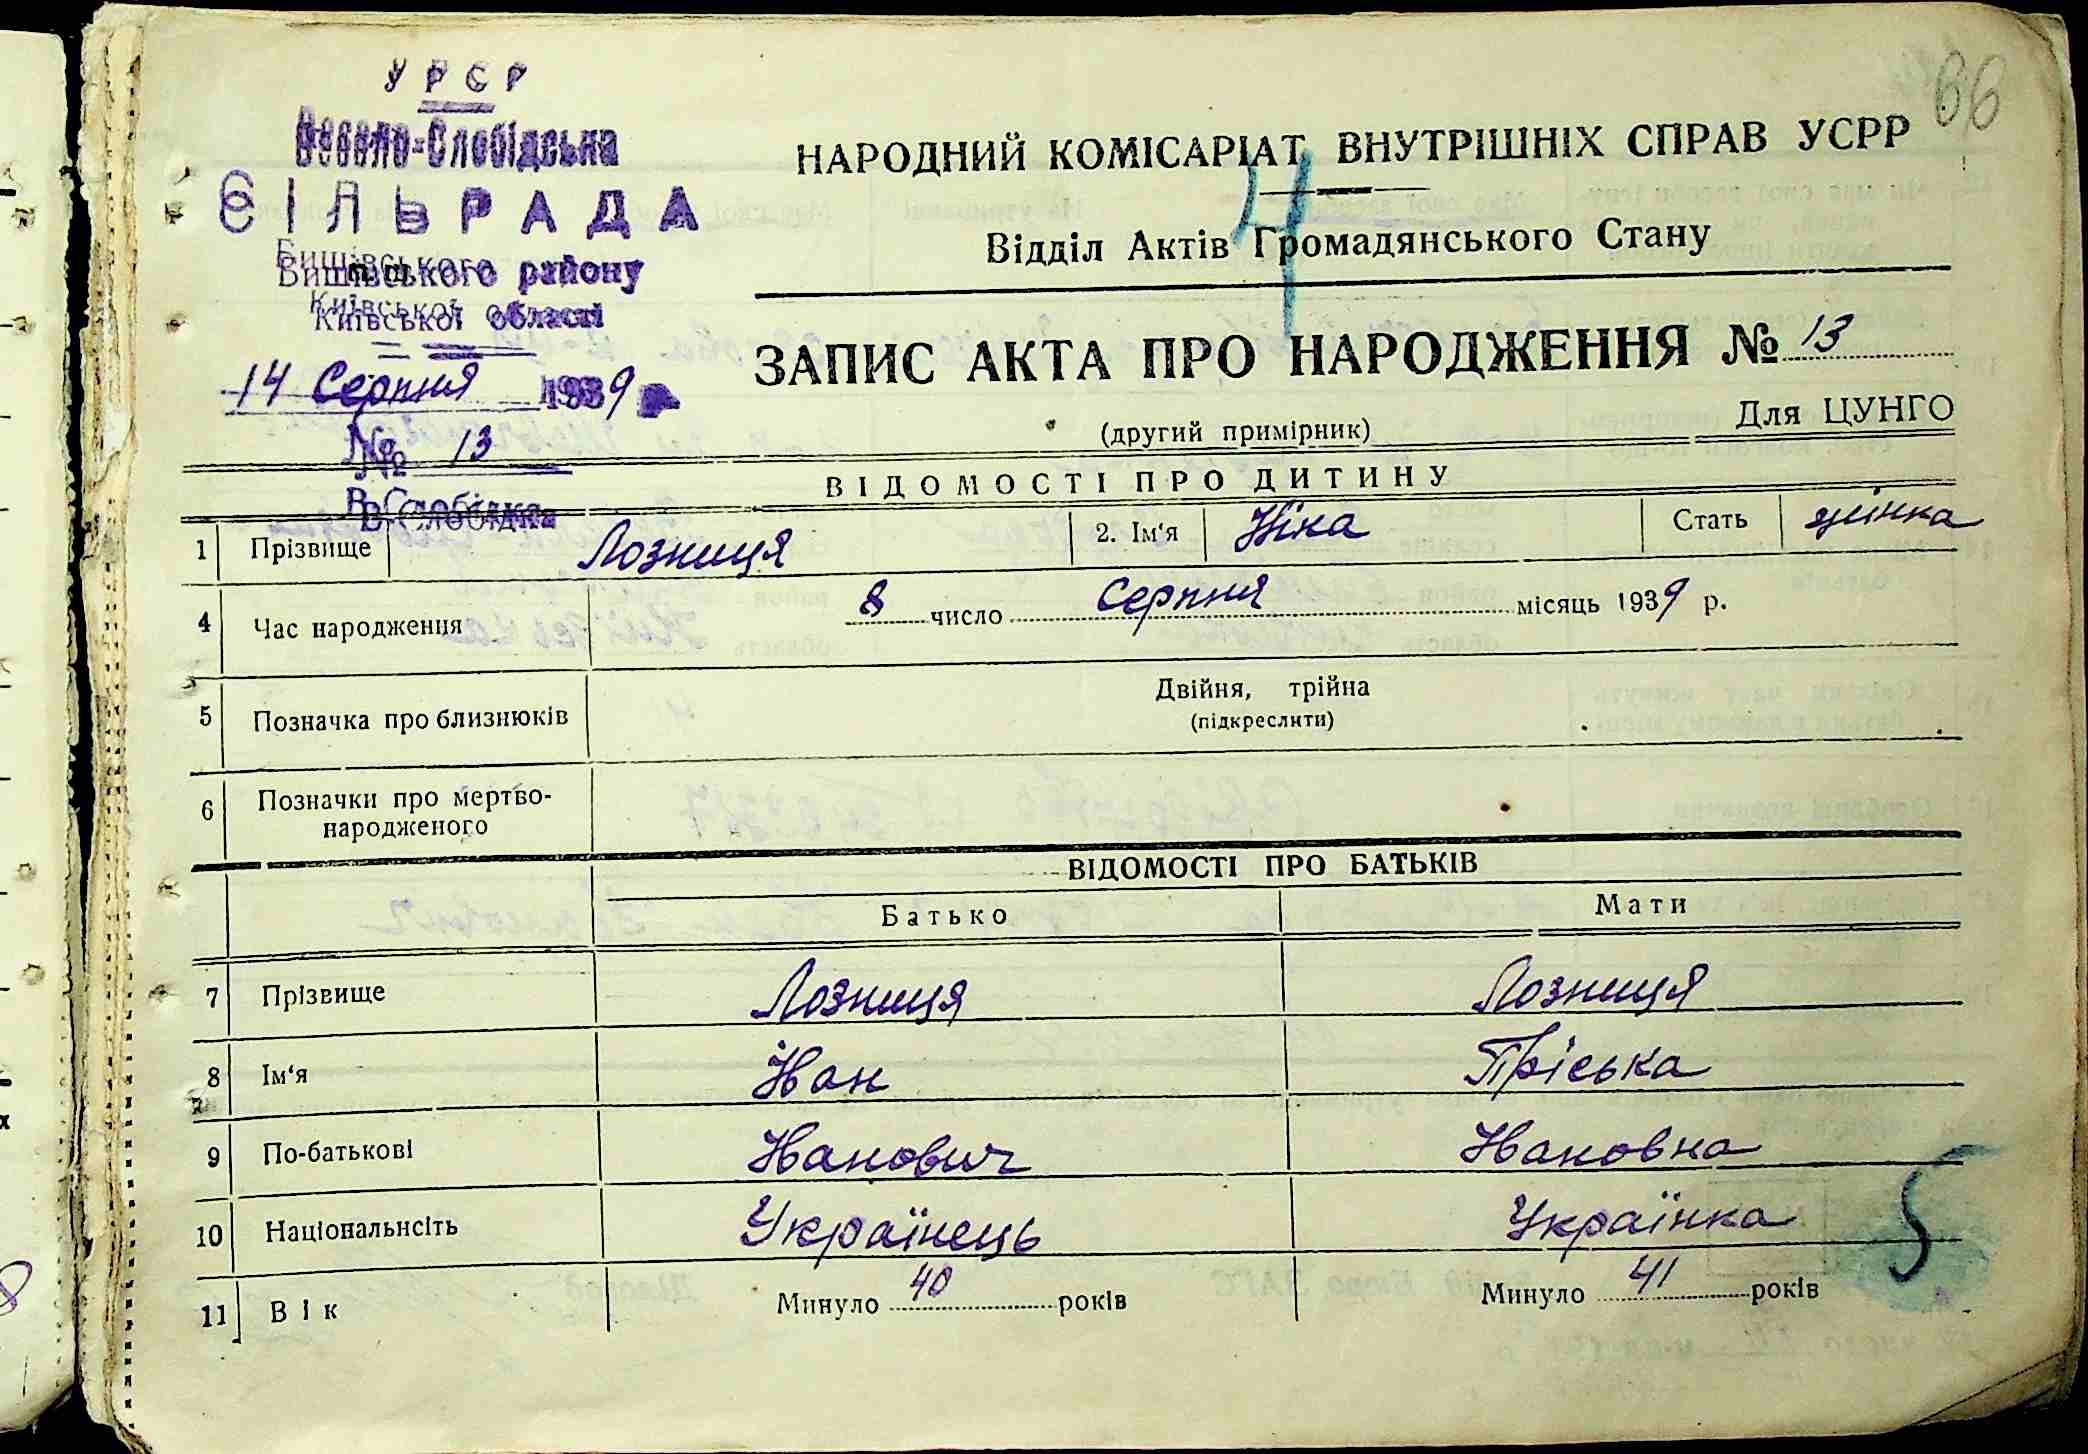 УРСР
Весело-Слобідська
СІЛЬРАДА
Бишівського району
Київської області
14 Серпня 1939
№ 13
В-Слобідка
66
НАРОДНИЙ КОМІСАРІАТ ВНУТРІШНІХ СПРАВ УСРР
4
Відділ Актів Громадянського Стану
ЗАПИС АКТА ПРО НАРОДЖЕННЯ № 13
(другий примірник) Для ЦУНГО
ВІДОМОСТІ ПРО ДИТИНУ
1 Прізвище Лозниця 2. Ім'я Ніна Стать жінка
4 Час народження 8 число Серпня місяць 1939 р.
5 Позначка про близнюків Двійня, трійна
(підкреслити)
6 Позначки про мертво-
народженого
ВІДОМОСТІ ПРО БАТЬКІВ
Батько Мати
7 Прізвище Лозниця Лозниця
8 Ім'я Іван Пріська
9 По-батькові Іванович Івановна
10 Національнсіть Українець Українка
5
11 Вік Минуло 40 років Минуло 41 років